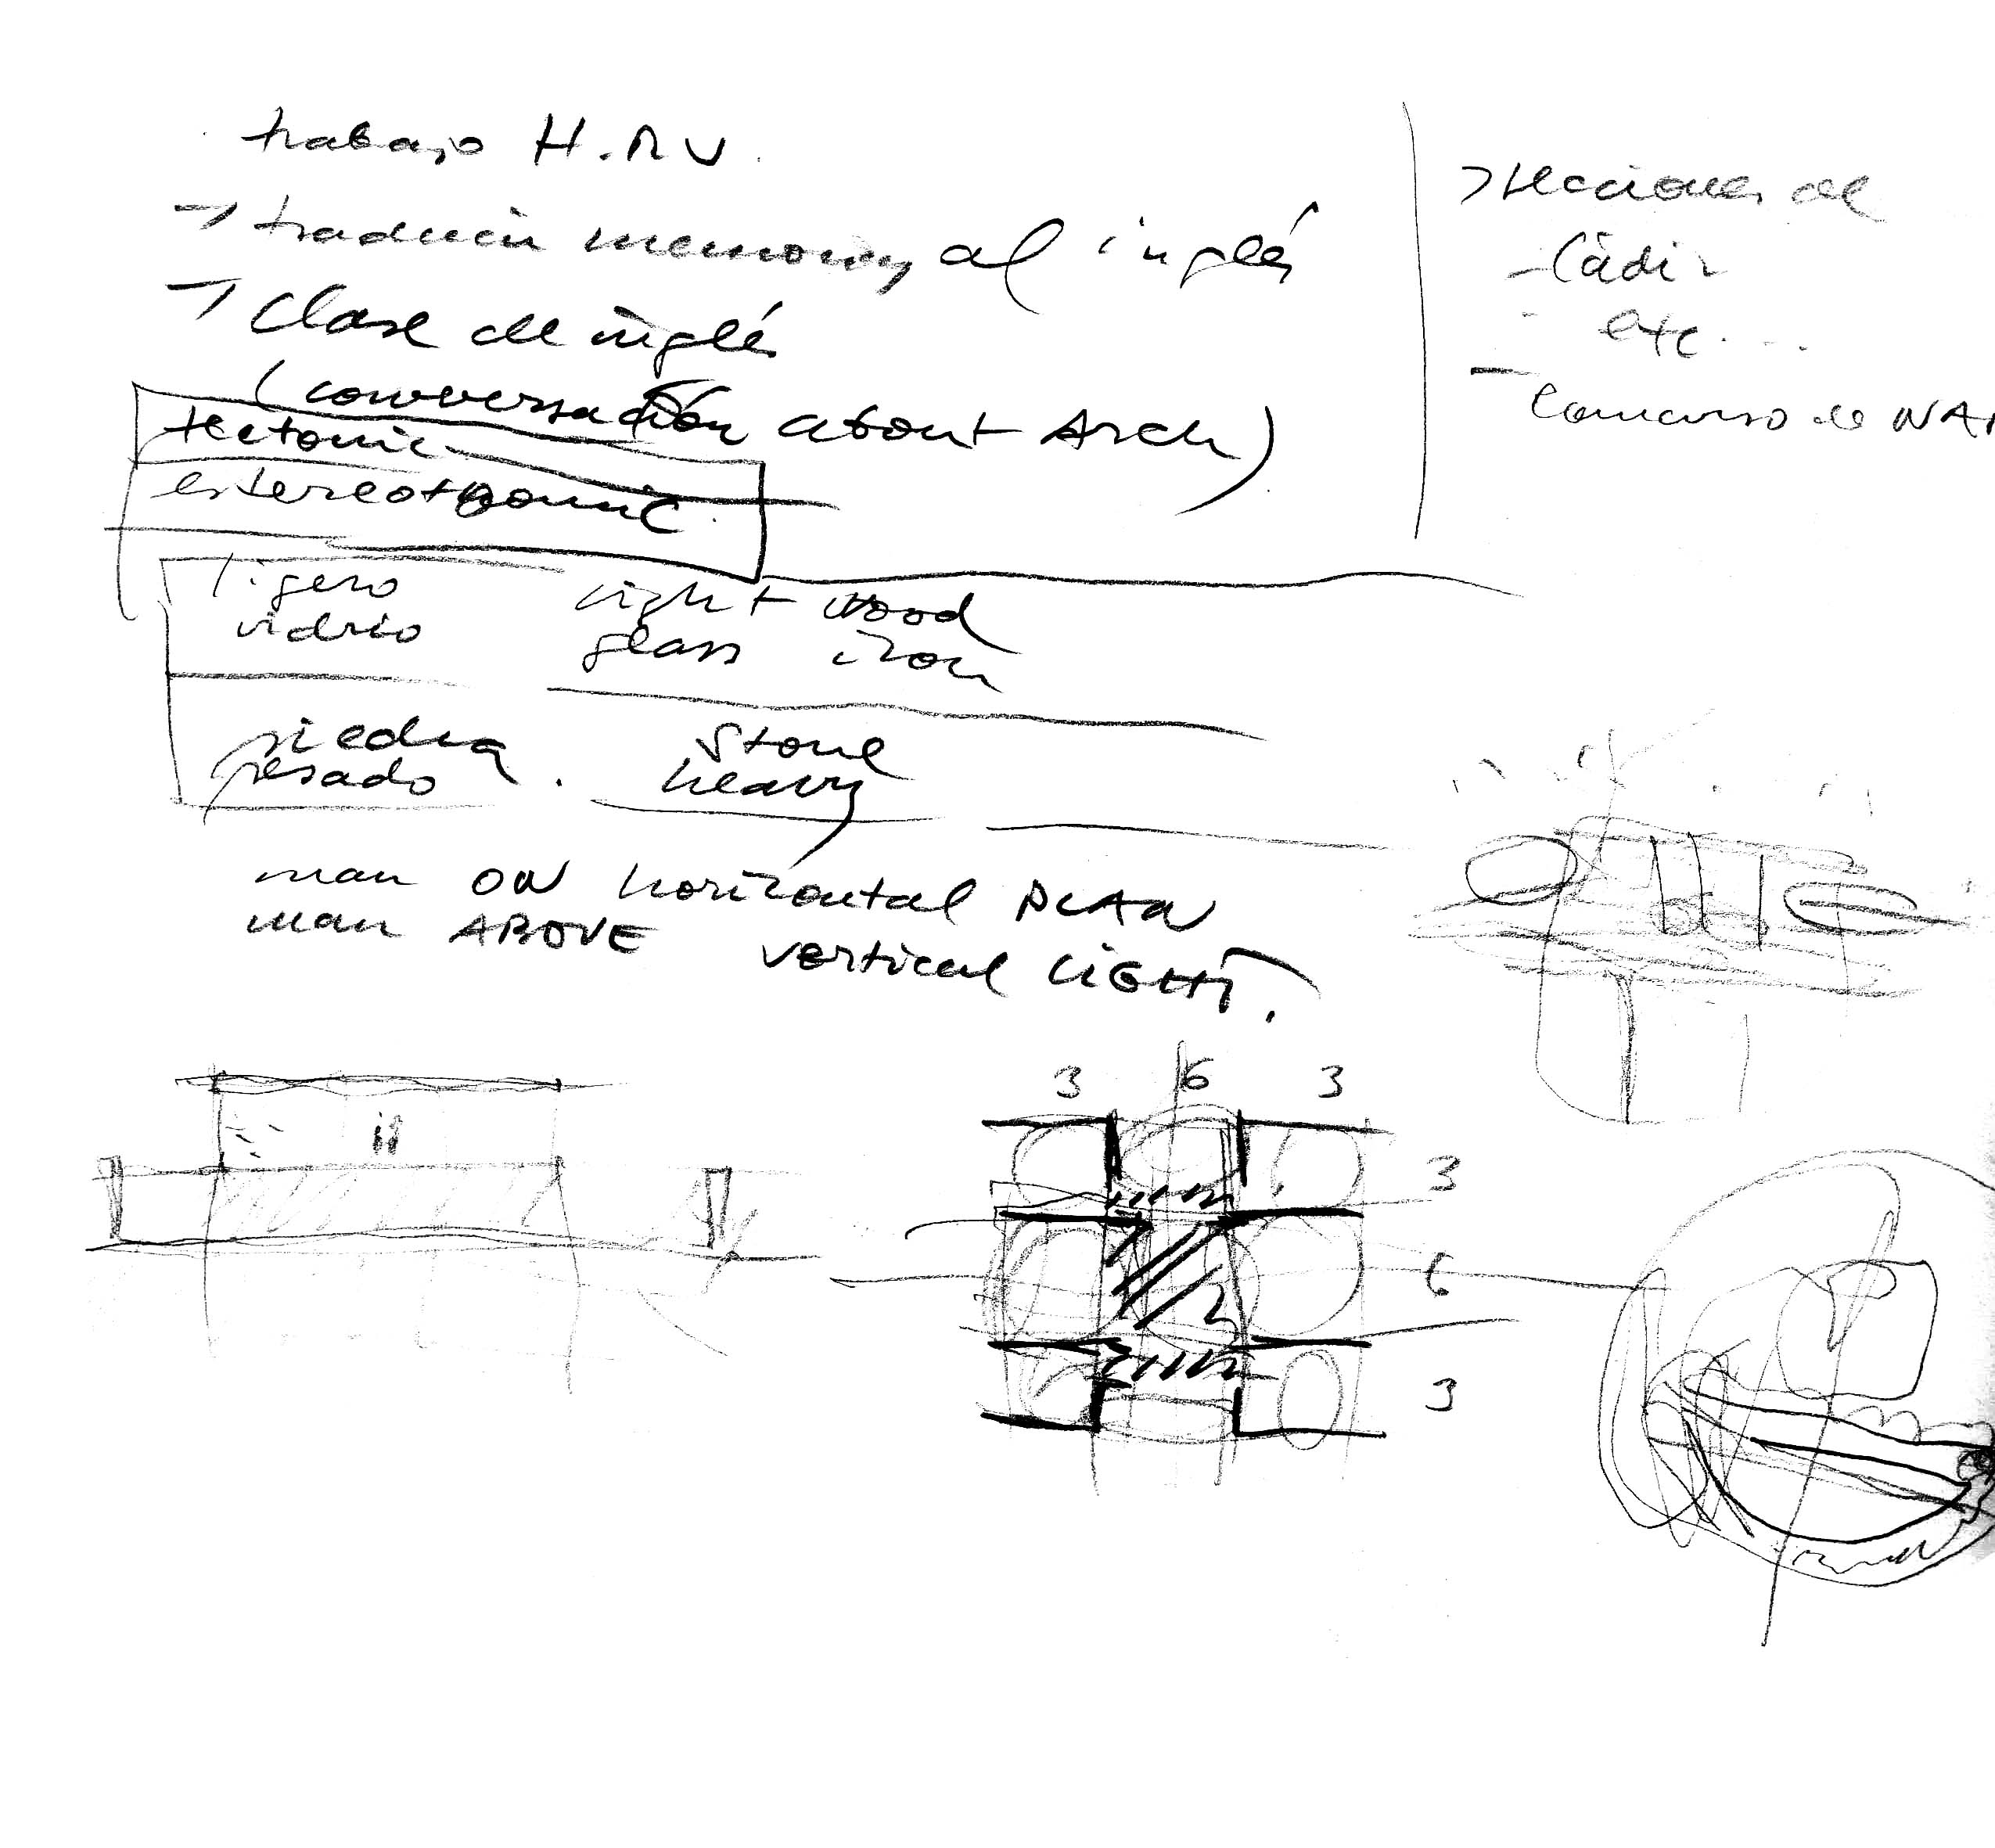 trabajo H.RV.
→ traducción memoria al inglés
→ Clase de inglés
(conversación about Arch)
tectonic
estereotomic
ligero light wood
vidrio glass iron
piedra stone
pesado. heavy
man ON horizontal PLAN
man ABOVE vertical LIGHT.
> secciones de
- Cádiz
- etc....
- Concurso de
3 6 3
3
6
3